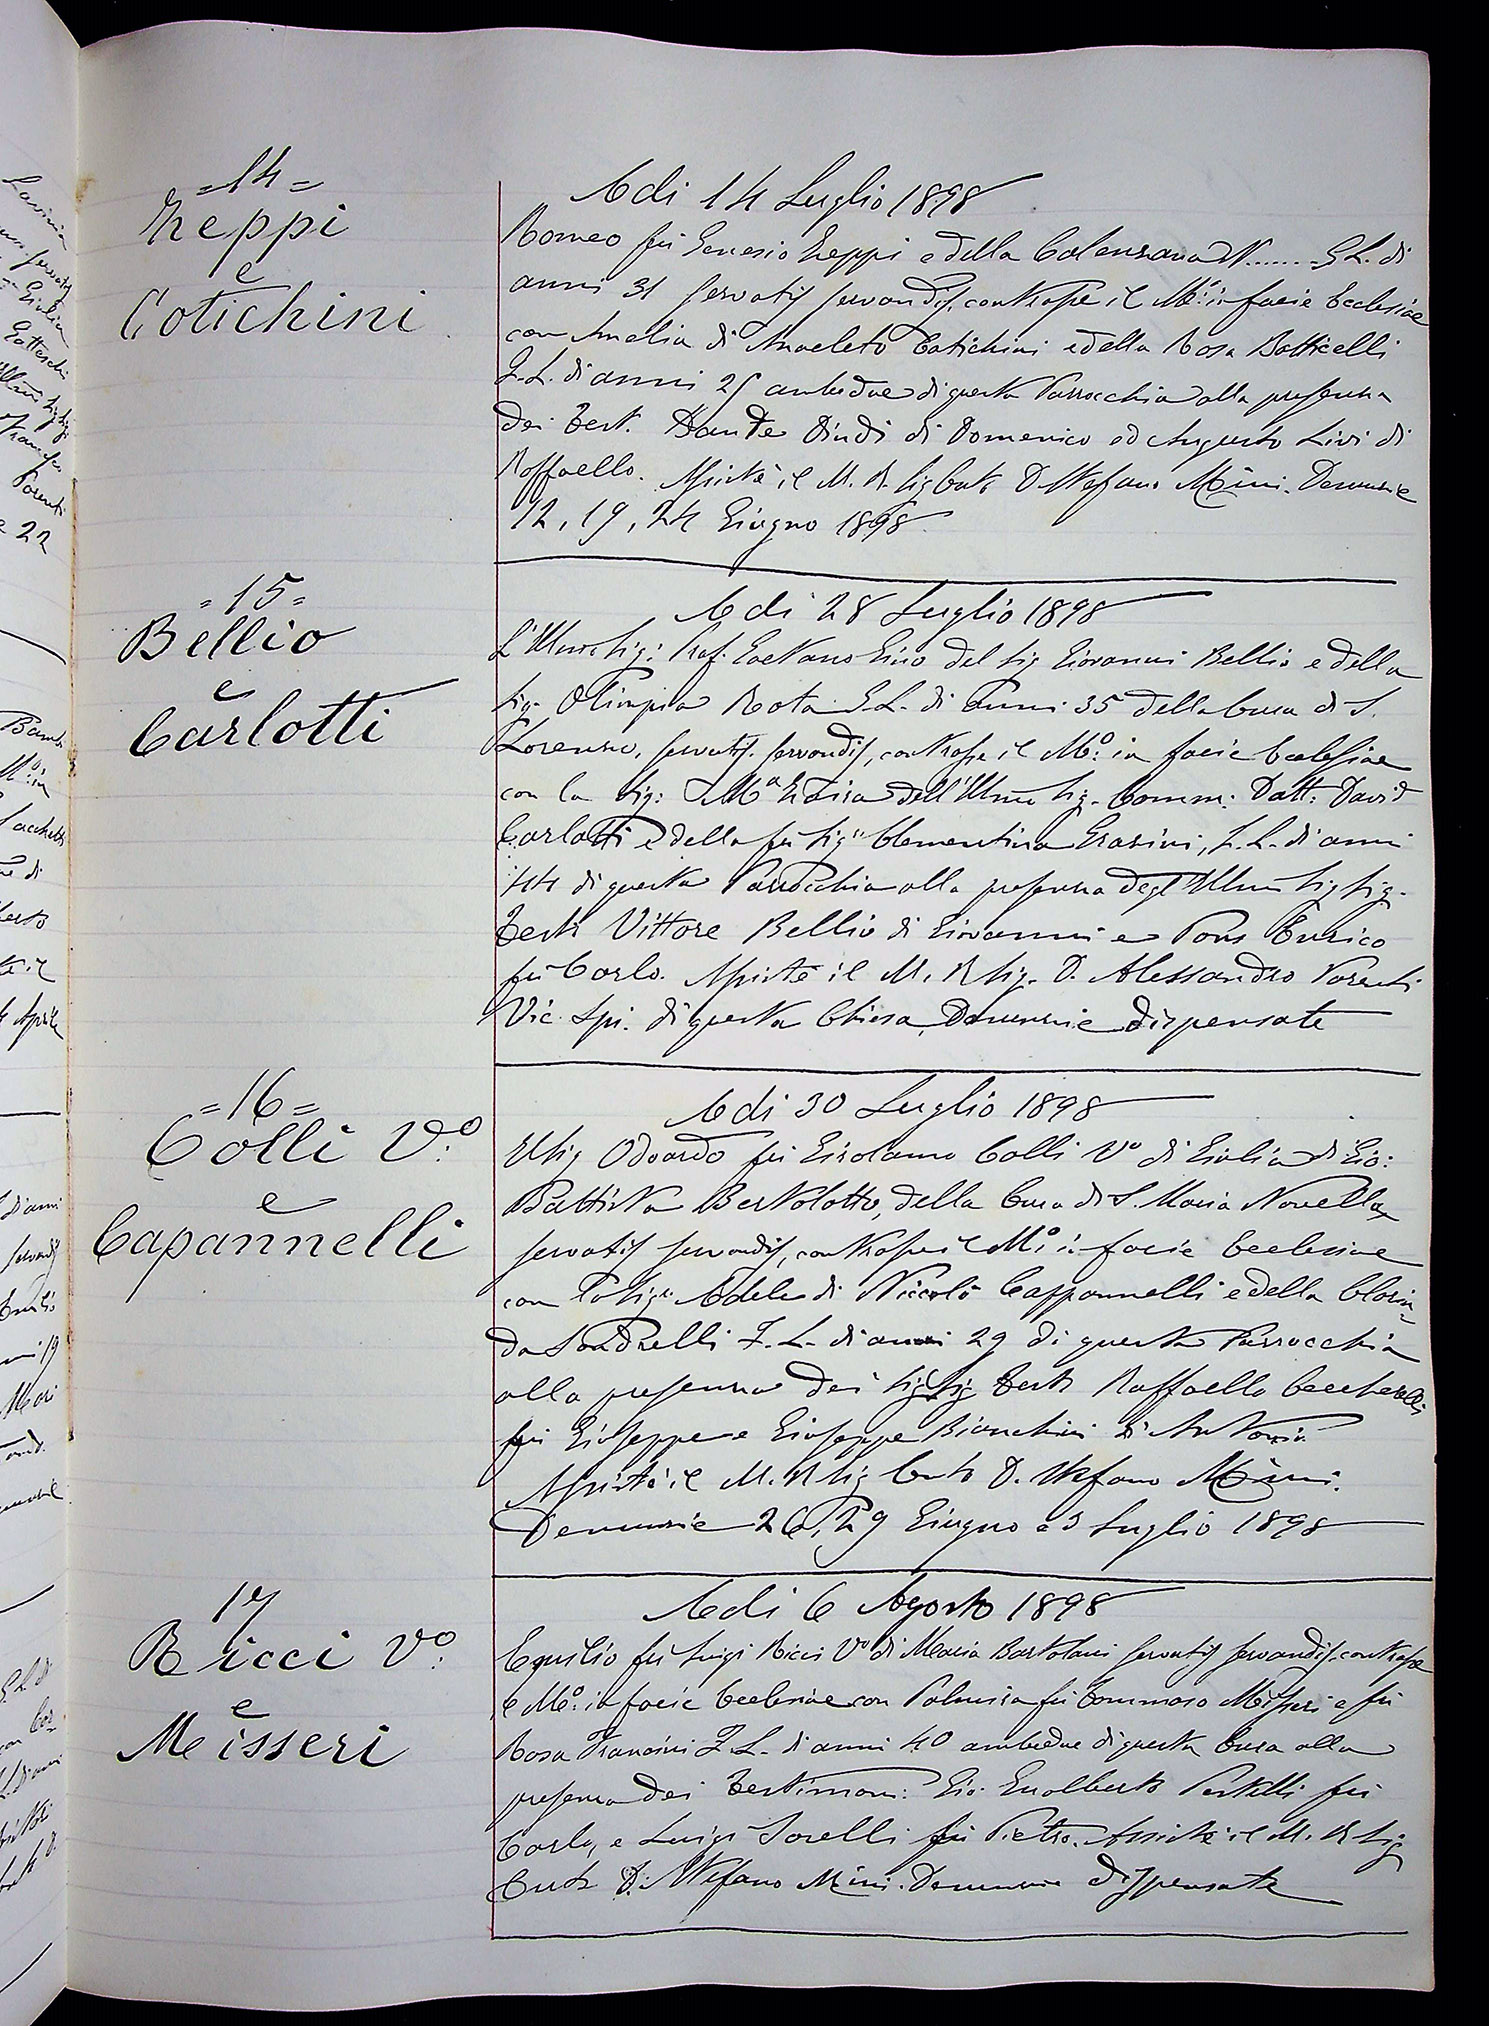 =14=
Zeppi
e
Cotichini
Adi 14 Luglio 1898
Romeo fu Genesio Zeppi e della Calenzana N....... G. L. di
anni 31 servatis servandis, contrasse il Mo: in facie Ecclesiae
con Amelia di Anacleto Cotichini e della Rosa Botticelli
F. L. di anni 25 ambedue di questa Parrocchia alla presenza
dei Test. Dante Dindi di Domenico ed Augusto Livi di
Raffaello. Assisté il M. R. Sig Curto D. Stefano Mini. Denunzie
12, 19, 24 Giugno 1898
=15=
Bellio
e
Carlotti
Adi 28 Luglio 1898
L'Illmo Sig: Prof. Gaetano Gino del Sig Giovanni Bellio e della
Sig. Olimpia Rota G. L. di Anni 35 della Cura di S.
Lorenzo, servatis servandis, contrasse il Mo: in facie Ecclesiae
con la Sig: Ma Elisa dell'Illmo Sig. Comm: Dott: David
Carlotti e della fu Siga Clementina Grasini, F. L. di anni
44 di questa Parrocchia alla presenza degl'Illmi Sig Sig.
Testi Vittore Bellio di Giovanni e Pons Enrico
fu Carlo. Assisté il M. R Sig. D. Alessandro Parenti
Vic. Spi. di questa Chiesa, Denunzie dispensate
=16=
Colli Vo:
e
Capannelli
Adi 30 Luglio 1898
Il Sig Odoardo fu Girolamo Colli Vo di Giulia di Gio:
Battista Bertolotto, della Cura di S. Maria Novella
servatis servandis, contrasse il Mo: in facie Ecclesiae
con la Siga Adele di Niccolò Cappannelli e della Clorin-
da Sandrelli F. L. di anni 29 di questa Parrocchia
alla presenza dei Sig Sig Testi Raffaello Ceccherelli
fu Giuseppe e Giuseppe Bianchini di Antonio
Assisté il M. R Sig Curto D. Stefano Mini.
Denunzie 26, 29 Giugno e 3 Luglio 1898
17
Ricci Vo:
e
Meisseri
Adi 6 Agosto 1898
Egisilio fu Luigi Ricci Vo di Maria Bartolani servatis servandis, contrasse
e Mo: in facie Ecclesiae con Palmira fu Tommaso Misseri e fu
Rosa Francini F. L. di anni 40 ambedue di questa Cura alla
presenza dei Testimoni: Gio: Gualberto Pestelli fu
Carlo, e Luigi Sorelli fu Pietro. Assisté il M. R Sig
Curto D. Stefano Mini. Denunzie dispensate